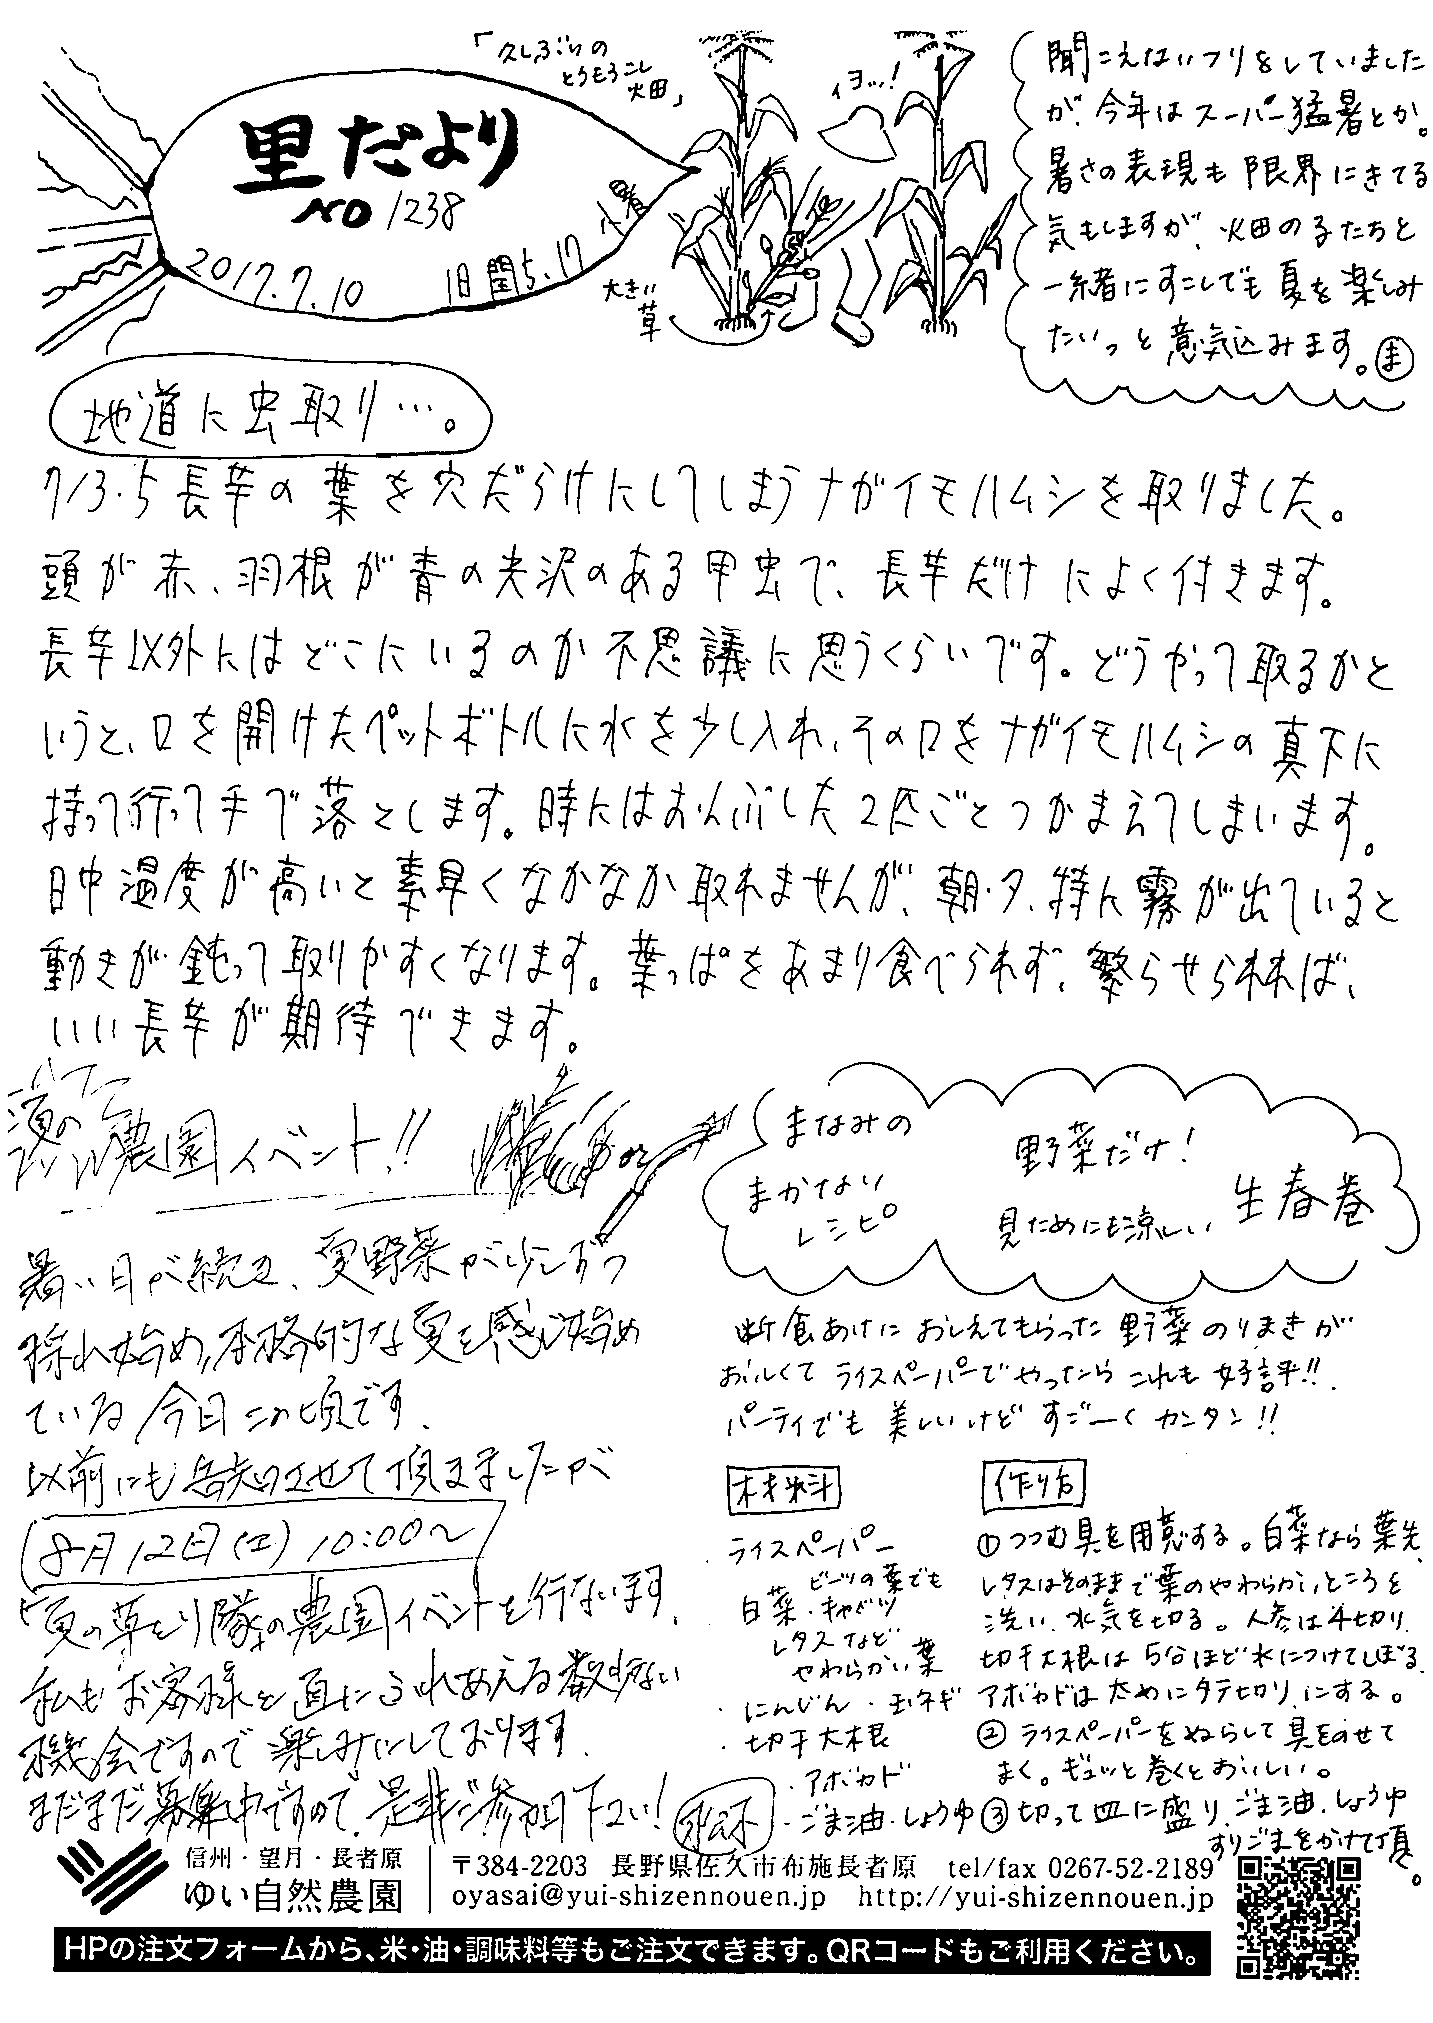 里だより
NO 1238
2017.7.10 旧閏5.17 小暑
「久しぶりの
とうもろこし
畑」
イヨッ!
大きい
草
聞こえないフリをしていました
が、今年はスーパー猛暑とか。
暑さの表現も限界にきてる
気もしますが、畑の子たちと
一緒にすこしでも夏を楽しみ
たいっと意気込みます。ま
地道に虫取り…。
7/3.5 長芋の葉を穴だらけにしてしまうナガイモハムシを取りました。
頭が赤、羽根が青の光沢のある甲虫で、長芋だけによく付きます。
長芋以外にはどこにいるのか不思議に思うくらいです。どうやって取るかと
いうと、口を開けたペットボトルに水を少し入れ、その口をナガイモハムシの真下に
持って行って手で落とします。時にはおんぶした2匹ごとつかまえてしまいます。
日中温度が高いと素早くなかなか取れませんが、朝・夕、特に霧が出ていると
動きが鈍って取りやすくなります。葉っぱをあまり食べられず、繁らせられれば、
いい長芋が期待できます。
夏の農園イベント!!
暑い日が続き、夏野菜が少しずつ
採れ始め、本格的な夏を感じ始め
ている今日この頃です.
以前にも告知させて頂きましたが
8月12日(土) 10:00〜
「夏の草とり隊」の農園イベントを行ないます.
私もお客様と直にふれあえる数少ない
機会ですので楽しみにしております.
まだまだ募集中ですので、是非ご参加下さい! 松下
まなみの
まかない
レシピ
野菜だけ!
見ためにも涼しい 生春巻
断食あけにおしえてもらった野菜のりまきが
おいしくてライスペーパーでやったらこれも好評!!
パーティでも美しいけどすごーくカンタン!!
材料
・ライスペーパー
ビーツの葉でも
白菜・キャベツ
レタスなど
やわらかい葉
・にんじん・玉ネギ
・切干大根
・アボカド
・ごま油・しょうゆ
作り方
①つつむ具を用意する。白菜なら葉先、
レタスはそのままで葉のやわらかいところを
洗い、水気を切る。人参は千切り、
切干大根は5分ほど水につけてしぼる、
アボカドは太めにタテ切り、にする。
②ライスペーパーをぬらして具をのせて
まく。ギュッと巻くとおいしい。
③切って皿に盛り、ごま油、しょうゆ
すりごまをかけて頂く。
信州・望月・長者原
ゆい自然農園
〒384-2203 長野県佐久市布施長者原 tel/fax 0267-52-2189
oyasai@yui-shizennouen.jp http://yui-shizennouen.jp
HPの注文フォームから、米・油・調味料等もご注文できます。QRコードもご利用ください。